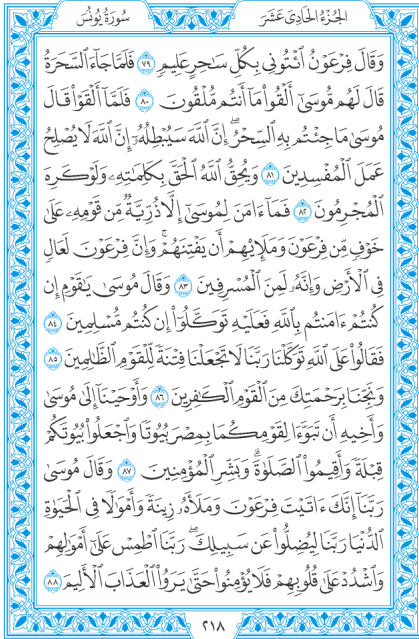 الجُزْءُ الحَادِي عَشَرَ
سُورَةُ يُونُسَ
وَقَالَ فِرْعَوْنُ ٱئْتُونِى بِكُلِّ سَٰحِرٍ عَلِيمٍ ٧٩ فَلَمَّا جَآءَ ٱلسَّحَرَةُ
قَالَ لَهُم مُّوسَىٰٓ أَلْقُوا۟ مَآ أَنتُم مُّلْقُونَ ٨٠ فَلَمَّآ أَلْقَوْا۟ قَالَ
مُوسَىٰ مَا جِئْتُم بِهِ ٱلسِّحْرُ ۖ إِنَّ ٱللَّهَ سَيُبْطِلُهُۥٓ إِنَّ ٱللَّهَ لَا يُصْلِحُ
عَمَلَ ٱلْمُفْسِدِينَ ٨١ وَيُحِقُّ ٱللَّهُ ٱلْحَقَّ بِكَلِمَٰتِهِۦ وَلَوْ كَرِهَ
ٱلْمُجْرِمُونَ ٨٢ فَمَآ ءَامَنَ لِمُوسَىٰٓ إِلَّا ذُرِّيَّةٌ مِّن قَوْمِهِۦ عَلَىٰ
خَوْفٍ مِّن فِرْعَوْنَ وَمَلَإِي۟هِمْ أَن يَفْتِنَهُمْ ۚ وَإِنَّ فِرْعَوْنَ لَعَالٍ
فِى ٱلْأَرْضِ وَإِنَّهُۥ لَمِنَ ٱلْمُسْرِفِينَ ٨٣ وَقَالَ مُوسَىٰ يَٰقَوْمِ إِن
كُنتُمْ ءَامَنتُم بِٱللَّهِ فَعَلَيْهِ تَوَكَّلُوٓا۟ إِن كُنتُم مُّسْلِمِينَ ٨٤
فَقَالُوا۟ عَلَى ٱللَّهِ تَوَكَّلْنَا رَبَّنَا لَا تَجْعَلْنَا فِتْنَةً لِّلْقَوْمِ ٱلظَّٰلِمِينَ ٨٥
وَنَجِّنَا بِرَحْمَتِكَ مِنَ ٱلْقَوْمِ ٱلْكَٰفِرِينَ ٨٦ وَأَوْحَيْنَآ إِلَىٰ مُوسَىٰ
وَأَخِيهِ أَن تَبَوَّءَا لِقَوْمِكُمَا بِمِصْرَ بُيُوتًا وَٱجْعَلُوا۟ بُيُوتَكُمْ
قِبْلَةً وَأَقِيمُوا۟ ٱلصَّلَوٰةَ ۗ وَبَشِّرِ ٱلْمُؤْمِنِينَ ٨٧ وَقَالَ مُوسَىٰ
رَبَّنَآ إِنَّكَ ءَاتَيْتَ فِرْعَوْنَ وَمَلَأَهُۥ زِينَةً وَأَمْوَٰلًا فِى ٱلْحَيَوٰةِ
ٱلدُّنْيَا رَبَّنَا لِيُضِلُّوا۟ عَن سَبِيلِكَ ۖ رَبَّنَا ٱطْمِسْ عَلَىٰٓ أَمْوَٰلِهِمْ
وَٱشْدُدْ عَلَىٰ قُلُوبِهِمْ فَلَا يُؤْمِنُوا۟ حَتَّىٰ يَرَوُا۟ ٱلْعَذَابَ ٱلْأَلِيمَ ٨٨
٢١٨